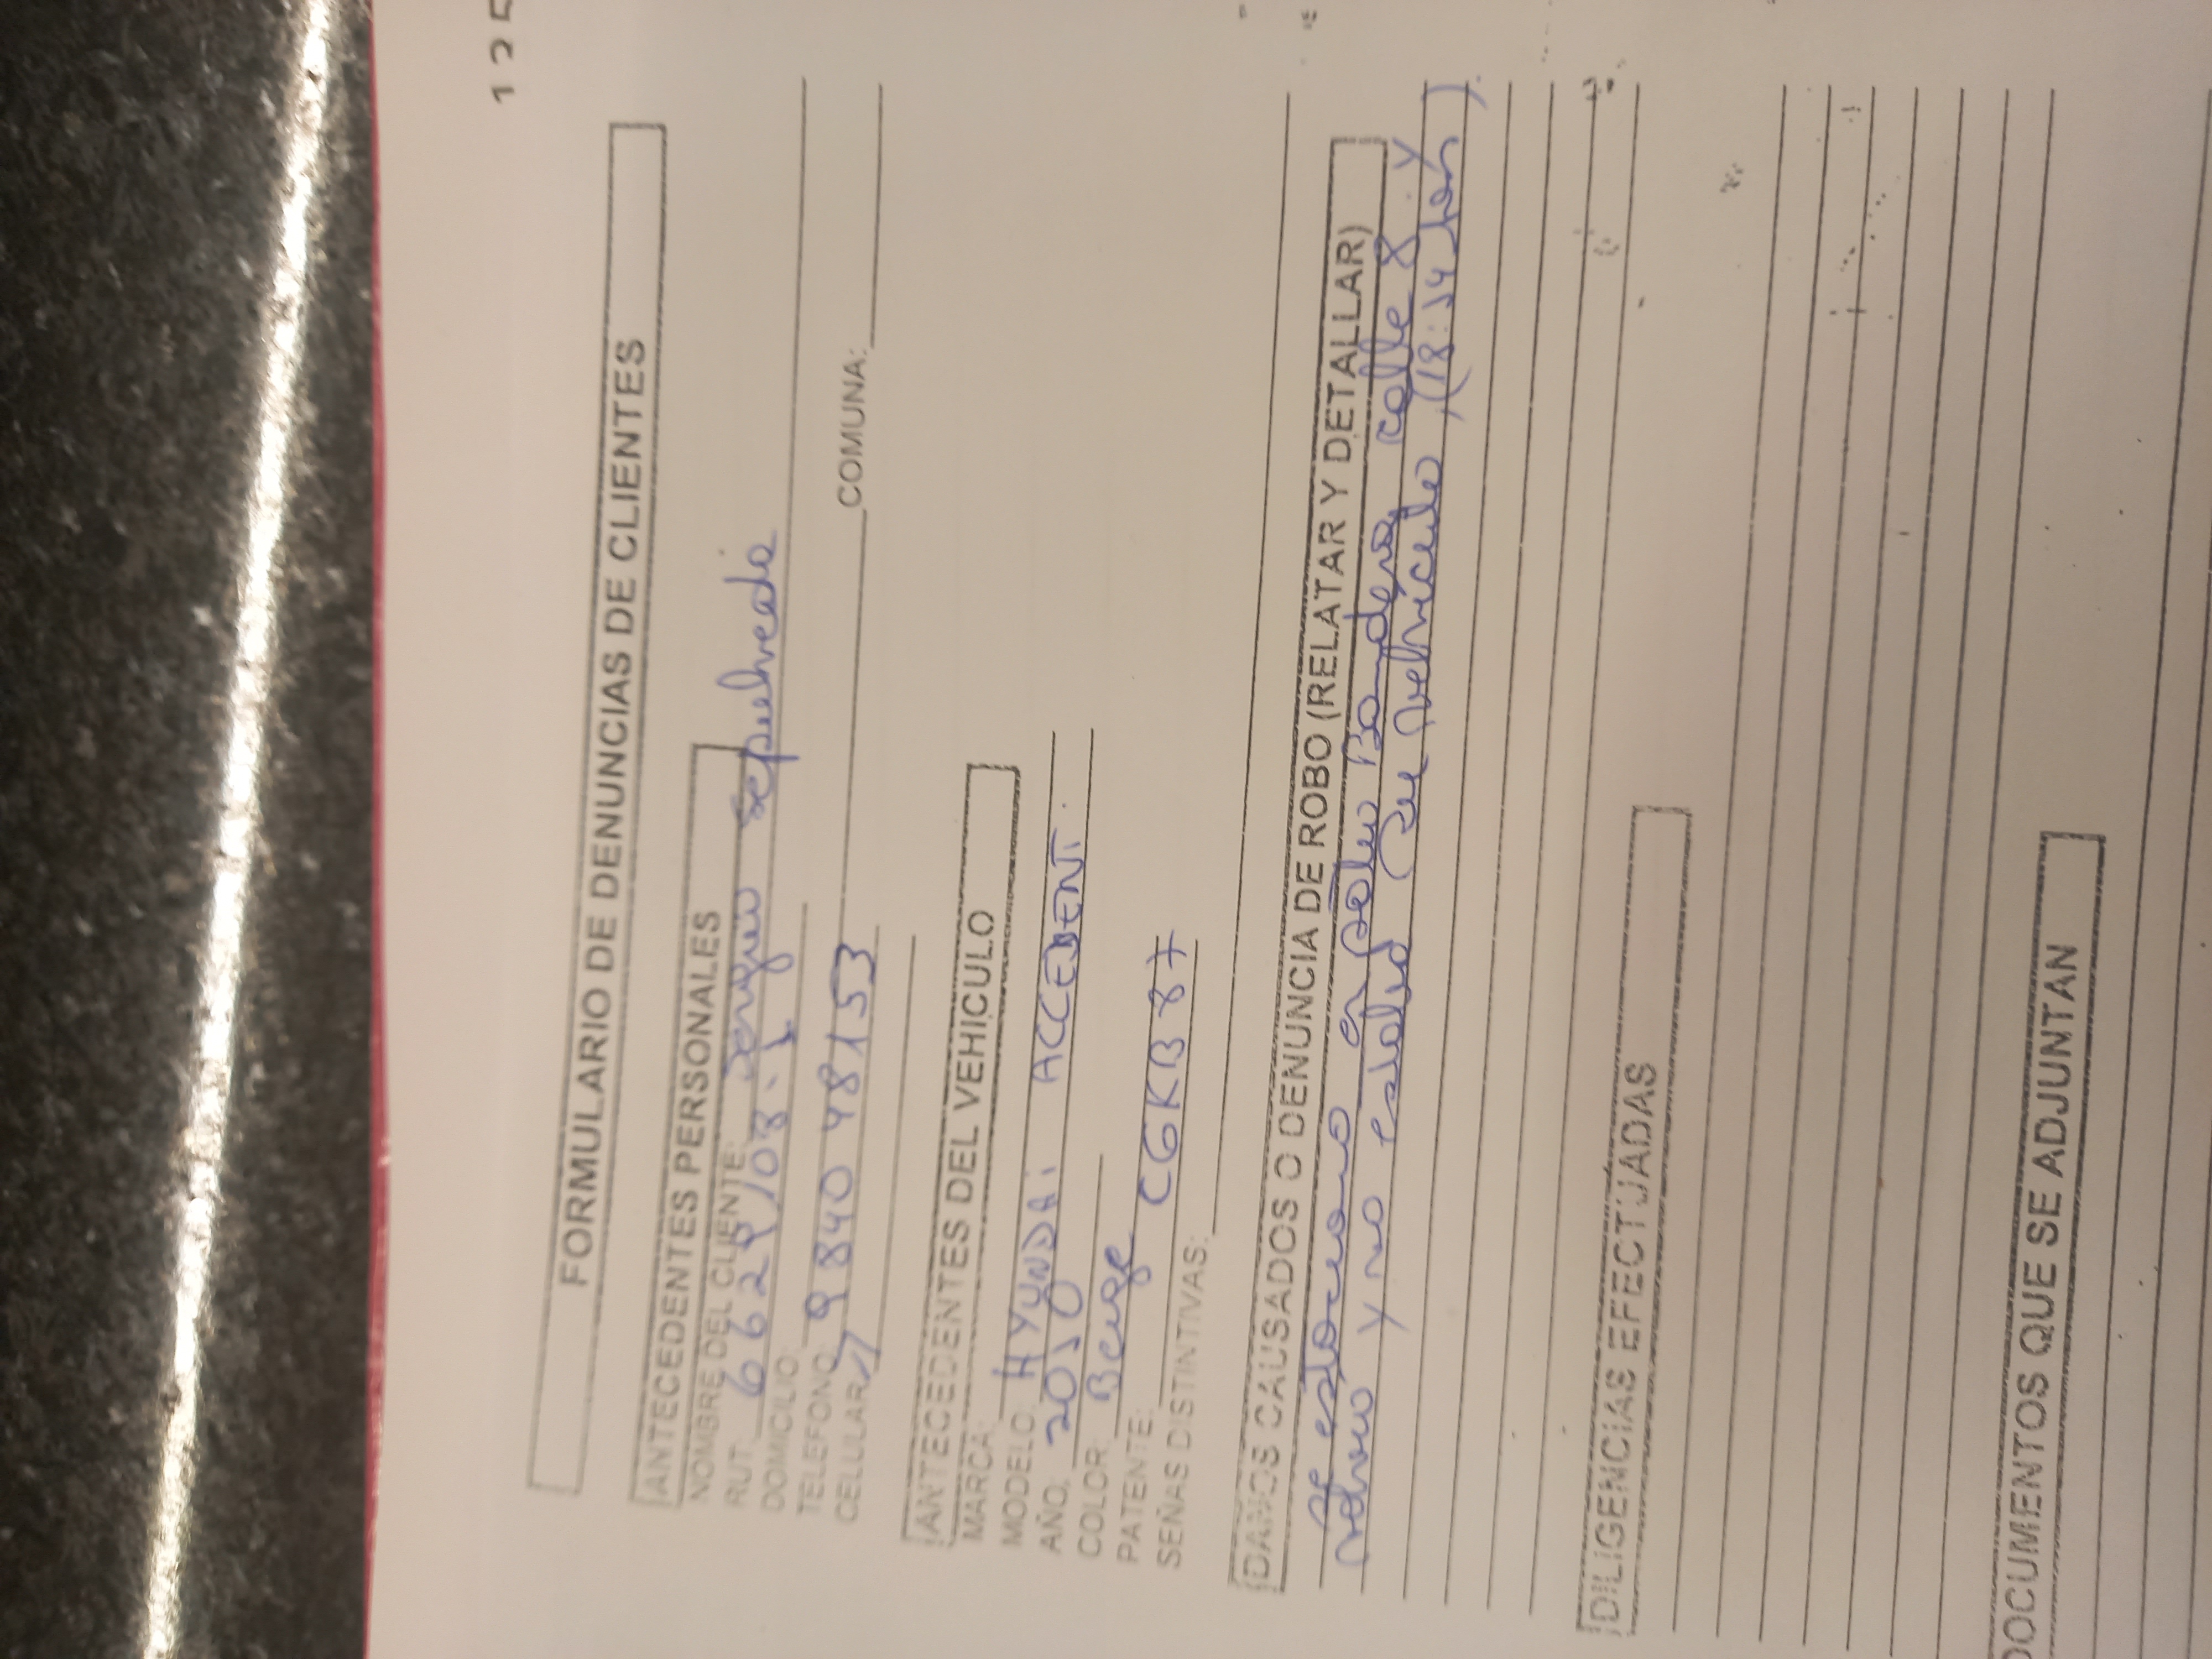 125
FORMULARIO DE DENUNCIAS DE CLIENTES
ANTECEDENTES PERSONALES
NOMBRE DEL CLIENTE: Sergio Sepulveda
RUT: 6629103-1
DOMICILIO:
TELEFONO: 984048153 COMUNA:
CELULAR
ANTECEDENTES DEL VEHICULO
MARCA: HYUNDAi
MODELO: ACCEDENT.
AÑO: 2010
COLOR: Beige
PATENTE: CGKB 87
SEÑAS DISTINTIVAS:
DAÑOS CAUSADOS O DENUNCIA DE ROBO (RELATAR Y DETALLAR)
Se estaciono en Bandera calle 8 y
volvio y no estaba (su vehiculo) (18:14 )
DILIGENCIAS EFECTUADAS
DOCUMENTOS QUE SE ADJUNTAN